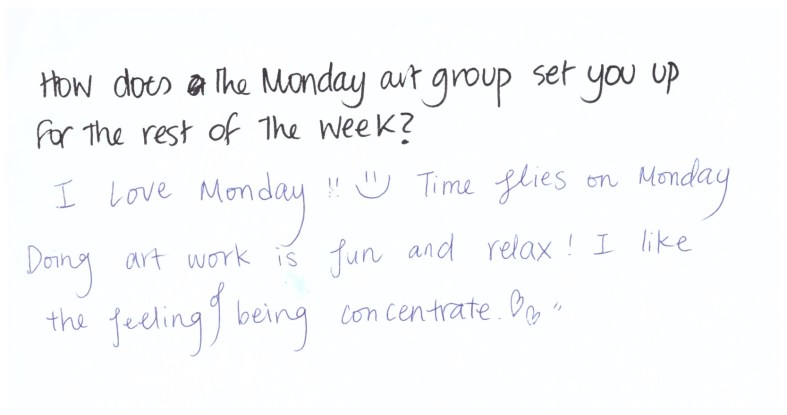 How does the Monday art group set you up
for the rest of the week?
I love Monday !! Time flies on Monday
Doing art work is fun and relax! I like
the feeling of being concentrate.